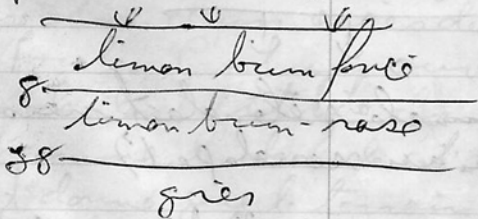 limon brun foncé
8
limon brun-rose
38
grès